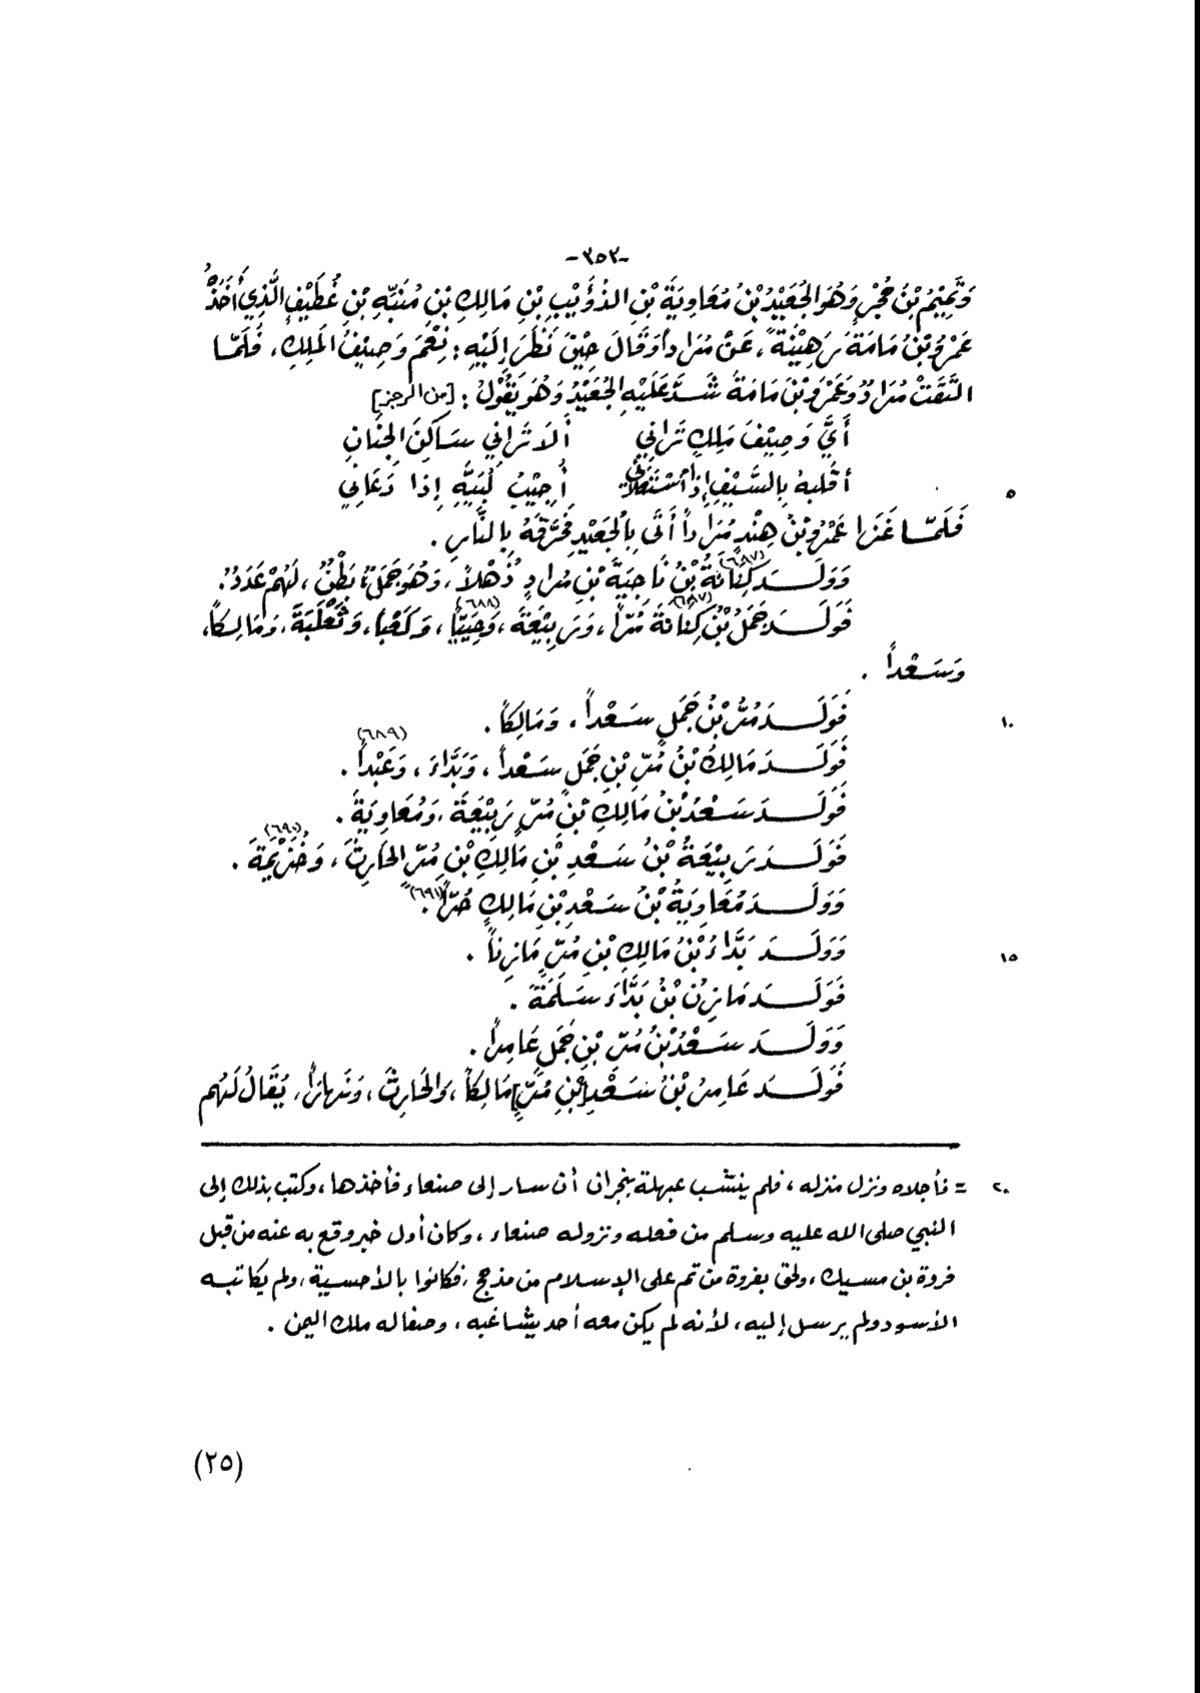 -٣٥٣-
وَتَمِيْمُ بْنُ حُجْرٍ وَهُوَ الجُعَيْدُ بْنُ مُعَاوِيَةَ بْنِ الذُؤَيْبِ بْنِ مَالِكِ بْنِ مُنَبِّهِ بْنِ غُطَيْفٍ الَّذِي أَخَذَهُ
عَمْرُو بْنُ مَامَةَ رَهِيْنَةً، عَنْ مُرَادٍ وَقَالَ حِيْنَ نَظَرَ إِلَيْهِ: نِعْمَ وَصِيْفُ المَلِكِ، فَلَمَّا
التَقَتْ مُرَادُ وَعَمْرُو بْنُ مَامَةَ شَدَّ عَلَيْهِ الجُعَيْدُ وَهُوَ يَقُوْلُ: [من الرجز]
أَيَّ وَصِيْفَ مَلِكٍ تَرَانِي أَلَا تَرَانِي سَاكِنَ الجِنَانِ
أقلبهُ بِالسَّيْفِ إِذَا أُجِيْبُ لَبَيَّهِ إِذَا دَعَانِي
٥
فَلَمَّا غَزَا عَمْرُو بْنُ هِنْدٍ مُرَاداً أَتَى بِالجُعَيْدِ فَحَرَّقَهُ بِالنَّارِ.
وَوَلَدَ كِنَانَةُ بْنُ نَاجِيَةَ بْنِ مُرَادٍ ذُهْلاً، وَهُوَ جَمَلٌ (٦٨٧) بَطْنٌ، لَهُمْ عَدَدٌ.
فَوَلَدَ جَمَلُ بْنُ كِنَانَةَ (٦٨٧) مُرّاً، وَرَبِيْعَةَ، وَحُيَيّاً (٦٨٨)، وَكَعْباً، وَثَعْلَبَةَ، وَمَالِكاً،
وَسَعْداً.
فَوَلَدَ مُرُّ بْنُ جَمَلٍ سَعْداً، وَمَالِكاً.
١٠
فَوَلَدَ مَالِكُ بْنُ مُرِّ بْنِ جَمَلٍ سَعْداً، وَبَدَّاءَ، وَعَبْداً (٦٨٩).
فَوَلَدَ سَعْدُ بْنُ مَالِكِ بْنِ مُرٍّ رَبِيْعَةَ، وَمُعَاوِيَةَ.
فَوَلَدَ رَبِيْعَةُ بْنُ سَعْدِ بْنِ مَالِكِ بْنِ مُرٍّ الحَارِثَ، وَخُزَيْمَةَ (٦٩٠).
وَوَلَدَ مُعَاوِيَةُ بْنُ سَعْدِ بْنِ مَالِكٍ حُرّاً (٦٩١).
وَوَلَدَ بَدَّاءُ بْنُ مَالِكِ بْنِ مُرٍّ مَازِناً.
١٥
فَوَلَدَ مَازِنُ بْنُ بَدَّاءَ سَلَمَةَ.
وَوَلَدَ سَعْدُ بْنُ مُرِّ بْنِ جَمَلٍ عَامِراً.
فَوَلَدَ عَامِرُ بْنُ سَعْدِ [بْنِ مُرٍّ] مَالِكاً، وَالحَارِثَ، وَنَهَاراً، يُقَالُ لَهُمْ
٢٠ = فأجلاه ونزل منزله، فلم ينشب عبهلة بنجران أن سار إلى صنعاء فأخذها، وكتب بذلك إلى
النبي صلى الله عليه وسلم من فعله ونزوله صنعاء، وكان أول خبر وقع به عنه من قبل
فروة بن مسيك، ولحق بفروة من تم على الإسلام من مذحج، فكانوا بالأحسية، ولم يكاتبه
الأسود ولم يرسل إليه، لأنه لم يكن معه أحد يشاغبه، وصفا له ملك اليمن.
(٢٥)